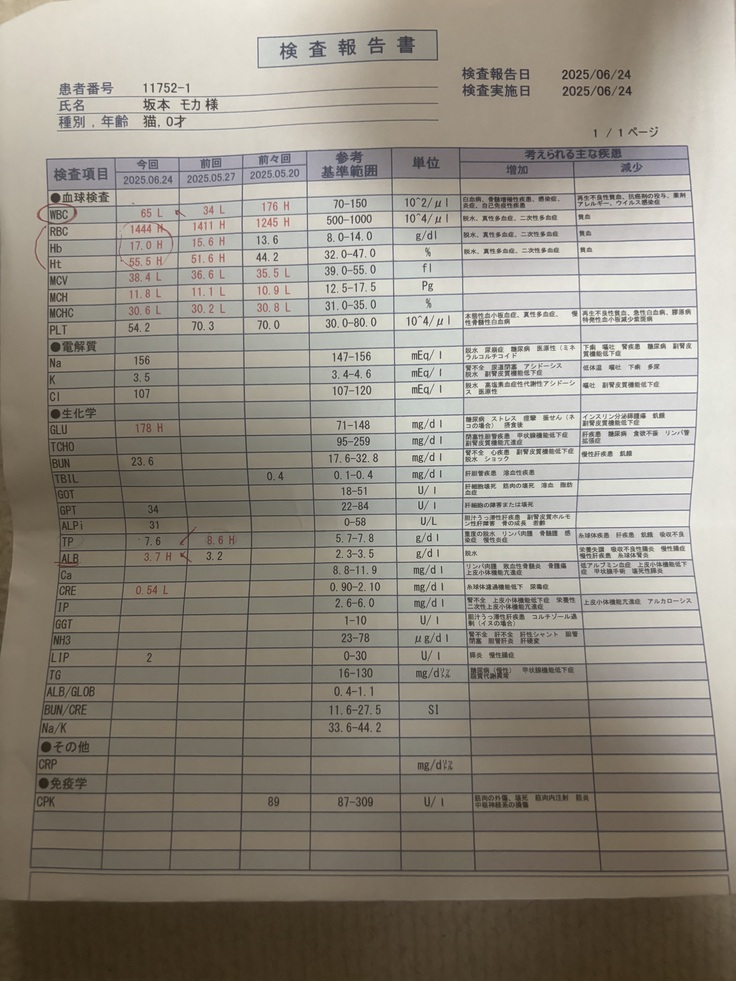 検査報告書
患者番号 11752-1
氏名 坂本 モカ 様
種別,年齢 猫,0才
検査報告日 2025/06/24
検査実施日 2025/06/24
1 / 1 ページ
検査項目 今回 2025.06.24 前回 2025.05.27 前々回 2025.05.20 参考基準範囲 単位 考えられる主な疾患 増加 減少
●血球検査
WBC 65 L 34 L 176 H 70-150 10^2/μl 白血病、骨髄増殖性疾患、感染症、炎症、自己免疫性疾患 再生不良性貧血、抗癌剤の投与、薬剤アレルギー、ウイルス感染症
RBC 1444 H 1411 H 1245 H 500-1000 10^4/μl 脱水、真性多血症、二次性多血症 貧血
Hb 17.0 H 15.6 H 13.6 8.0-14.0 g/dl 脱水、真性多血症、二次性多血症 貧血
Ht 55.5 H 51.6 H 44.2 32.0-47.0 % 脱水、真性多血症、二次性多血症 貧血
MCV 38.4 L 36.6 L 35.5 L 39.0-55.0 fl
MCH 11.8 L 11.1 L 10.9 L 12.5-17.5 Pg
MCHC 30.6 L 30.2 L 30.8 L 31.0-35.0 %
PLT 54.2 70.3 70.0 30.0-80.0 10^4/μl 本態性血小板血症、真性多血症、慢性骨髄性白血病 再生不良性貧血、急性白血病、膠原病 特発性血小板減少紫斑病
●電解質
Na 156 147-156 mEq/l 脱水 尿崩症 糖尿病 医原性（ミネラルコルチコイド 下痢 嘔吐 腎疾患 糖尿病 副腎皮質機能低下症
K 3.5 3.4-4.6 mEq/l 腎不全 尿道閉塞 アシドーシス 脱水 副腎皮質機能低下症 低体温 嘔吐 下痢 多尿
Cl 107 107-120 mEq/l 脱水 高塩素血症性代謝性アシドーシス 医原性 嘔吐 副腎皮質機能低下症
●生化学
GLU 178 H 71-148 mg/dl 糖尿病 ストレス 痙攣 振せん（ネコの場合） 摂食後 インスリン分泌膵腫瘍 飢餓 副腎皮質機能低下症
TCHO 95-259 mg/dl 閉塞性胆管疾患 甲状腺機能低下症 副腎皮質機能亢進症 肝疾患 糖尿病 食欲不振 リンパ管拡張症
BUN 23.6 17.6-32.8 mg/dl 腎不全 心疾患 副腎皮質機能低下症 脱水 ショック 慢性肝疾患 飢餓
TBIL 0.4 0.1-0.4 mg/dl 肝胆管疾患 溶血性疾患
GOT 18-51 U/l 肝細胞壊死 筋肉の壊死 溶血 脂肪血症
GPT 34 22-84 U/l 肝細胞の障害または壊死
ALPi 31 0-58 U/L 胆汁うっ滞性肝疾患 副腎皮質ホルモン性肝障害 骨の成長 若齢
TP 7.6 8.6 H 5.7-7.8 g/dl 重度の脱水 リンパ肉腫 骨髄腫 感染症 慢性炎症 糸球体疾患 肝疾患 飢餓 吸収不良
ALB 3.7 H 3.2 2.3-3.5 g/dl 脱水 栄養失調 吸収不良性腸炎 慢性腸症 慢性肝疾患 糸球体腎炎
Ca 8.8-11.9 mg/dl リンパ肉腫 敗血性骨髄炎 骨腫瘍 上皮小体機能亢進症 低アルブミン血症 上皮小体機能低下症 甲状腺手術 壊死性膵炎
CRE 0.54 L 0.90-2.10 mg/dl 糸球体濾過機能低下 尿毒症
IP 2.6-6.0 mg/dl 腎不全 上皮小体機能低下症 栄養性二次性上皮小体機能亢進症 上皮小体機能亢進症 アルカローシス
GGT 1-10 U/l 胆汁うっ滞性肝疾患 コルチゾール過剰（イヌの場合）
NH3 23-78 μg/dl 腎不全 肝不全 肝性シャント 胆管閉塞 胆管肝炎 肝硬変
LIP 2 0-30 U/l 膵炎 慢性腸症
TG 16-130 mg/dl 糖尿病（慢性） 甲状腺機能低下症 脂質代謝異常
ALB/GLOB 0.4-1.1
BUN/CRE 11.6-27.5 SI
Na/K 33.6-44.2
●その他
CRP mg/dl
●免疫学
CPK 89 87-309 U/l 筋肉の外傷、壊死 筋肉内注射 筋炎 中枢神経系の損傷